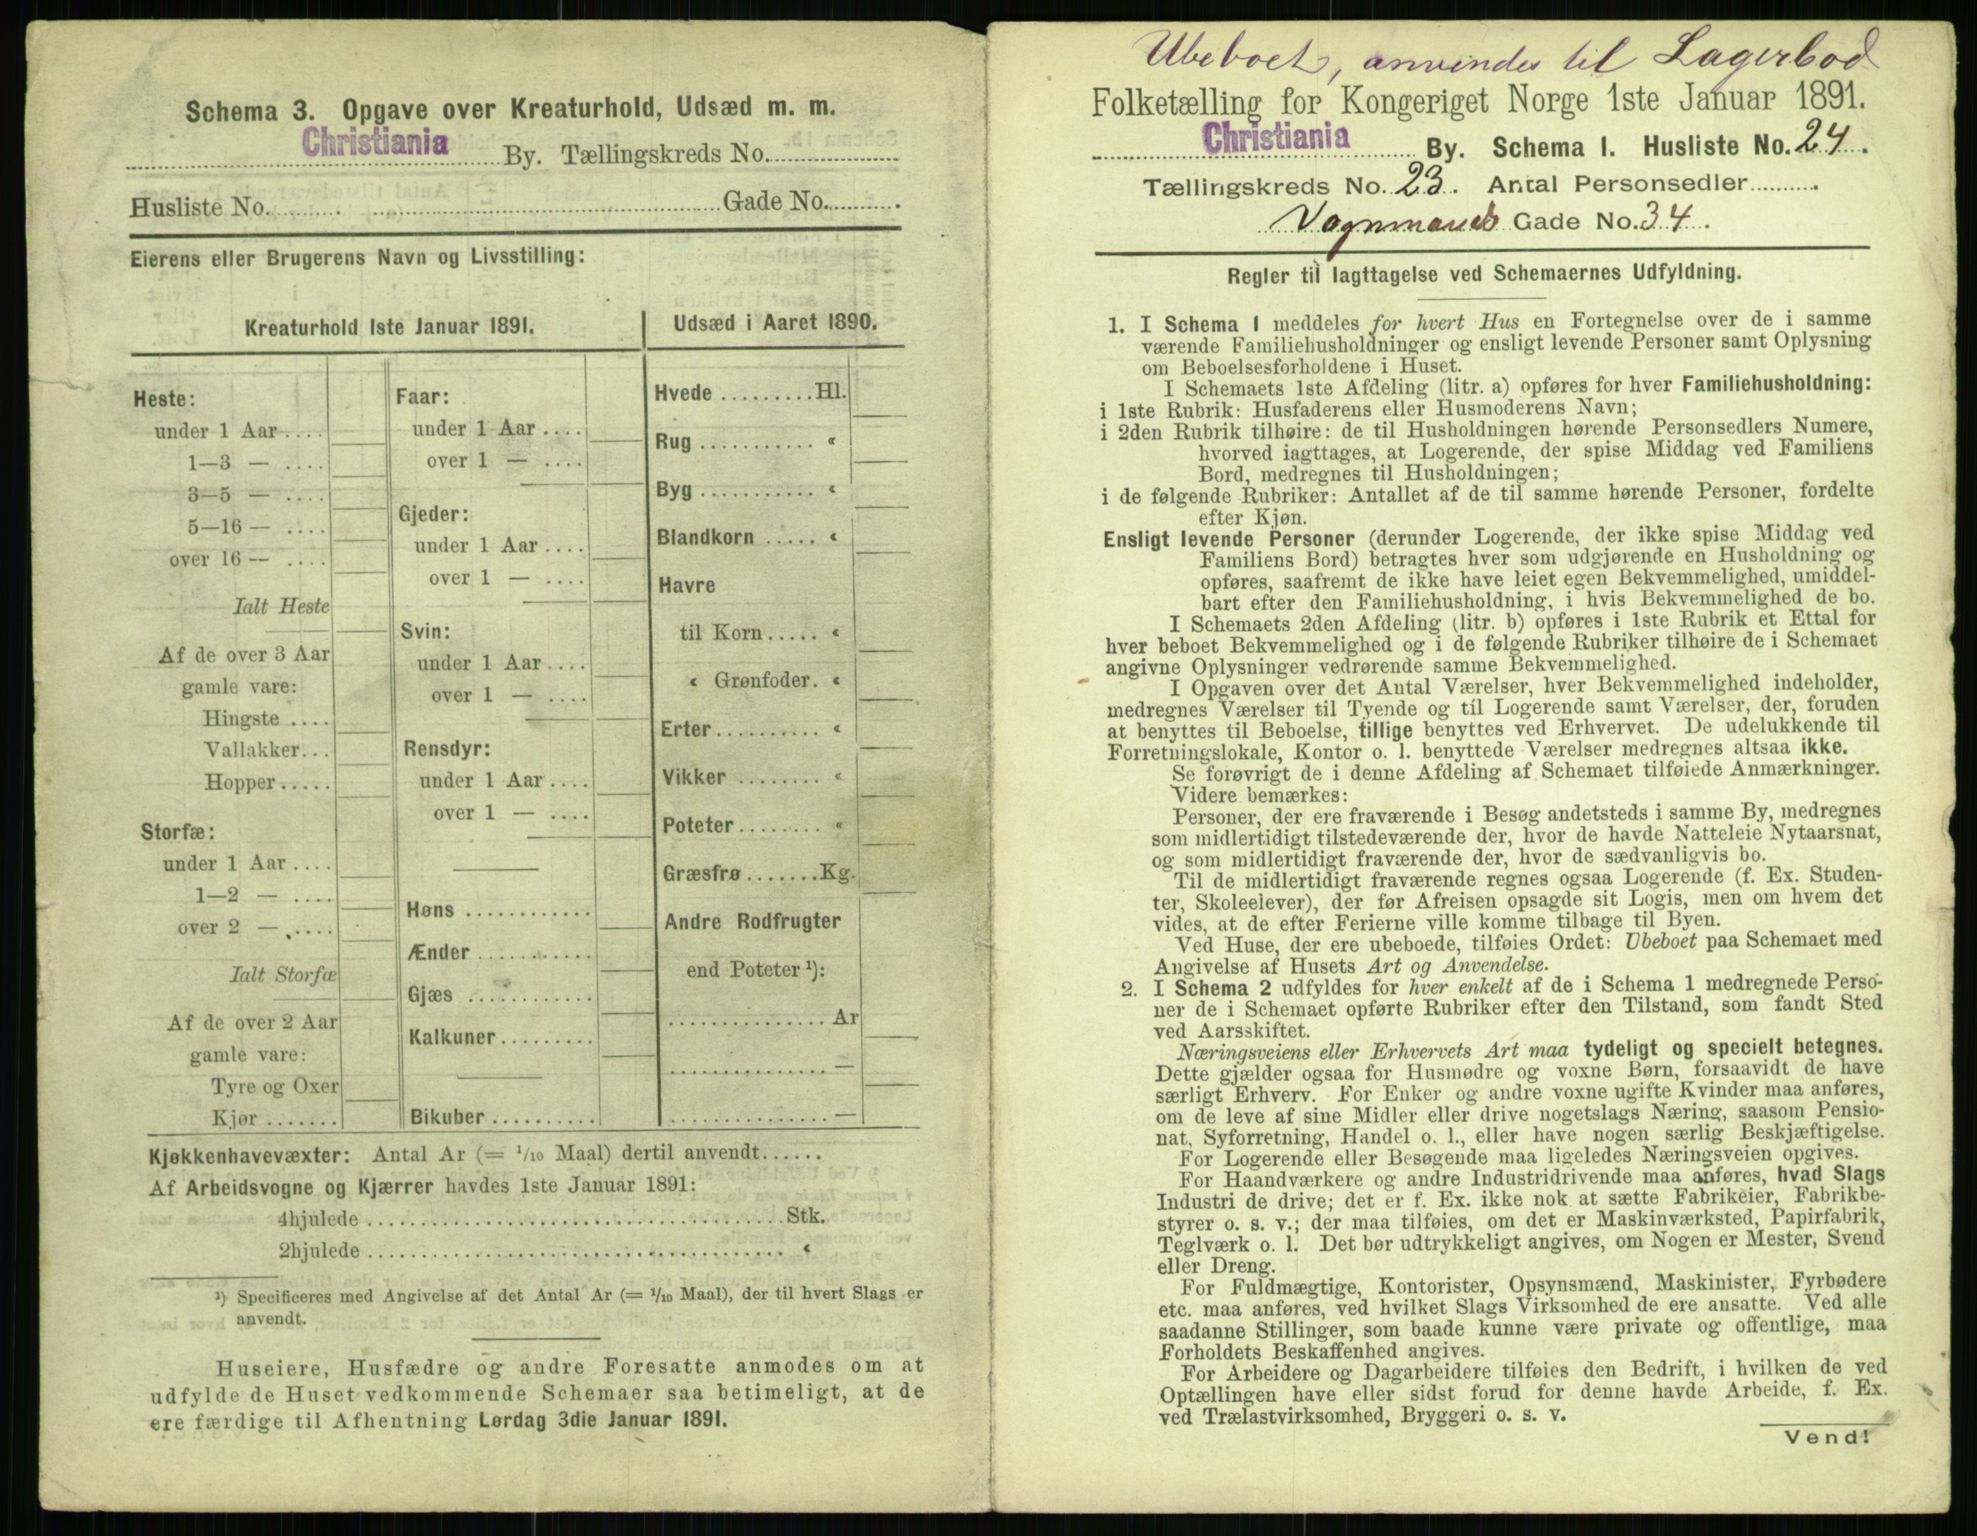 Schema 3. Opgave over Kreaturhold, Udsæd m. m.
Christiania By. Tællingskreds No.
Husliste No. Gade No.
Eierens eller Brugerens Navn og Livsstilling:
Kreaturhold 1ste Januar 1891.
Heste:
under 1 Aar
1—3 —
3—5 —
5—16 —
over 16 —
Ialt Heste
Af de over 3 Aar
gamle vare:
Hingste
Vallakker
Hopper
Storfæ:
under 1 Aar
1—2 —
over 2 —
Ialt Storfæ
Af de over 2 Aar
gamle vare:
Tyre og Oxer
Kjør
Faar:
under 1 Aar
over 1 —
Gjeder:
under 1 Aar
over 1 —
Svin:
under 1 Aar
over 1 —
Rensdyr:
under 1 Aar
over 1 —
Høns
Ænder
Gjæs
Kalkuner
Bikuber
Udsæd i Aaret 1890.
Hvede Hl.
Rug «
Byg «
Blandkorn «
Havre
til Korn «
« Grønfoder. «
Erter «
Vikker «
Poteter «
Græsfrø Kg.
Andre Rodfrugter
end Poteter ¹):
Ar
—
—
Kjøkkenhavevæxter: Antal Ar (= 1/10 Maal) dertil anvendt
Af Arbeidsvogne og Kjærrer havdes 1ste Januar 1891:
4hjulede Stk.
2hjulede «
¹) Specificeres med Angivelse af det Antal Ar (= 1/10 Maal), der til hvert Slags er
anvendt.
Huseiere, Husfædre og andre Foresatte anmodes om at
udfylde de Huset vedkommende Schemaer saa betimeligt, at de
ere færdige til Afhentning Lørdag 3die Januar 1891.
Ubeboet, anvendes til Lagerbod
Folketælling for Kongeriget Norge 1ste Januar 1891.
Christiania By. Schema 1. Husliste No. 24.
Tællingskreds No. 23. Antal Personsedler
Vognmands Gade No. 34.
Regler til Iagttagelse ved Schemaernes Udfyldning.
1. I Schema 1 meddeles for hvert Hus en Fortegnelse over de i samme
værende Familiehusholdninger og ensligt levende Personer samt Oplysning
om Beboelsesforholdene i Huset.
I Schemaets 1ste Afdeling (litr. a) opføres for hver Familiehusholdning:
i 1ste Rubrik: Husfaderens eller Husmoderens Navn;
i 2den Rubrik tilhøire: de til Husholdningen hørende Personsedlers Numere,
hvorved iagttages, at Logerende, der spise Middag ved Familiens
Bord, medregnes til Husholdningen;
i de følgende Rubriker: Antallet af de til samme hørende Personer, fordelte
efter Kjøn.
Ensligt levende Personer (derunder Logerende, der ikke spise Middag ved
Familiens Bord) betragtes hver som udgjørende en Husholdning og
opføres, saafremt de ikke have leiet egen Bekvemmelighed, umiddel-
bart efter den Familiehusholdning, i hvis Bekvemmelighed de bo.
I Schemaets 2den Afdeling (litr. b) opføres i 1ste Rubrik et Ettal for
hver beboet Bekvemmelighed og i de følgende Rubriker tilhøire de i Schemaet
angivne Oplysninger vedrørende samme Bekvemmelighed.
I Opgaven over det Antal Værelser, hver Bekvemmelighed indeholder,
medregnes Værelser til Tyende og til Logerende samt Værelser, der, foruden
at benyttes til Beboelse, tillige benyttes ved Erhvervet. De udelukkende til
Forretningslokale, Kontor o. l. benyttede Værelser medregnes altsaa ikke.
Se forøvrigt de i denne Afdeling af Schemaet tilføiede Anmærkninger.
Videre bemærkes:
Personer, der ere fraværende i Besøg andetsteds i samme By, medregnes
som midlertidigt tilstedeværende der, hvor de havde Natteleie Nytaarsnat,
og som midlertidigt fraværende der, hvor de sædvanligvis bo.
Til de midlertidigt fraværende regnes ogsaa Logerende (f. Ex. Studen-
ter, Skoleelever), der før Afreisen opsagde sit Logis, men om hvem det
vides, at de efter Ferierne ville komme tilbage til Byen.
Ved Huse, der ere ubeboede, tilføies Ordet: Ubeboet paa Schemaet med
Angivelse af Husets Art og Anvendelse.
2. I Schema 2 udfyldes for hver enkelt af de i Schema 1 medregnede Perso-
ner de i Schemaet opførte Rubriker efter den Tilstand, som fandt Sted
ved Aarsskiftet.
Næringsveiens eller Erhvervets Art maa tydeligt og specielt betegnes.
Dette gjælder ogsaa for Husmødre og voxne Børn, forsaavidt de have
særligt Erhverv. For Enker og andre voxne ugifte Kvinder maa anføres,
om de leve af sine Midler eller drive nogetslags Næring, saasom Pensio-
nat, Syforretning, Handel o. l., eller have nogen særlig Beskjæftigelse.
For Logerende eller Besøgende maa ligeledes Næringsveien opgives.
For Haandværkere og andre Industridrivende maa anføres, hvad Slags
Industri de drive; det er f. Ex. ikke nok at sætte Fabrikeier, Fabrikbe-
styrer o. s. v.; der maa tilføies, om det er Maskinværksted, Papirfabrik,
Teglværk o. l. Det bør udtrykkeligt angives, om Nogen er Mester, Svend
eller Dreng.
For Fuldmægtige, Kontorister, Opsynsmænd, Maskinister, Fyrbødere
etc. maa anføres, ved hvilket Slags Virksomhed de ere ansatte. Ved alle
saadanne Stillinger, som baade kunne være private og offentlige, maa
Forholdets Beskaffenhed angives.
For Arbeidere og Dagarbeidere tilføies den Bedrift, i hvilken de ved
Optællingen have eller sidst forud for denne havde Arbeide, f. Ex.
ved Trælastvirksomhed, Bryggeri o. s. v.
Vend!